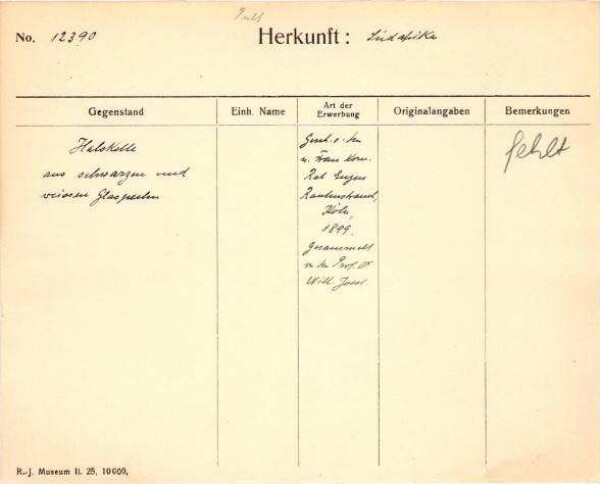 No. 12390
Herkunft: Südafrika
Gegenstand
Einh. Name
Art der
Erwerbung
Originalangaben
Bemerkungen
Halskette
aus schwarzen und
weissen Glasperlen
Gesch. v. Hn
u. Frau Kom.
Rat Eugen
Rautenstrauch,
Köln,
1899.
Gesammelt
v. Hn Prof. Dr
Wilh. Joest.
fehlt
R.-J. Museum II. 25, 10000,